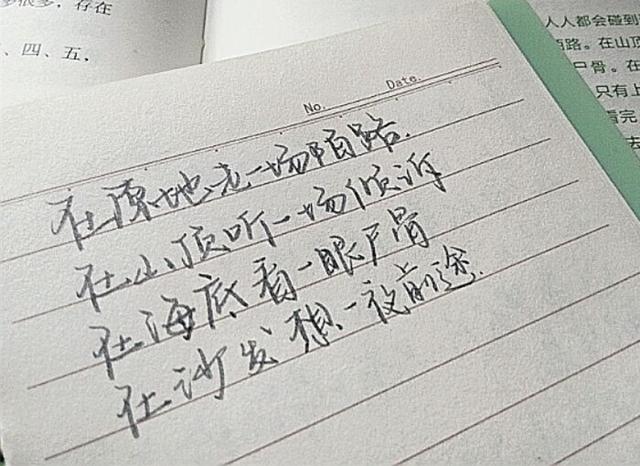 多很多，存在
、四、五，
人人都会碰到
陌路。在山顶
尸骨。在
只有上
看完
去
No. Date.
在原地走一场陌路.
在山顶听一场倾诉
在海底看一眼尸骨
在沙发想一夜前途.